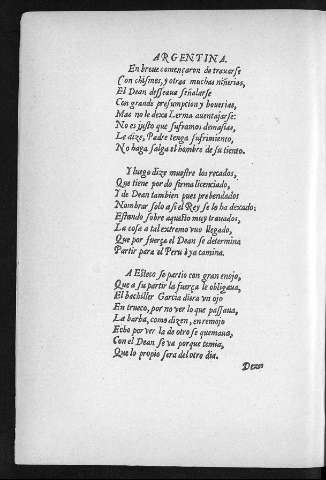 ARGENTINA.
En breue començaron de trauarse
Con chismes, y otras muchas niñerias,
El Dean desseaua señalarse
Con grande presumpcion y bouerias,
Mas no le dexa Lerma auentajarse:
No es justo que suframos demasias,
Le dize, Padre tenga sufrimiento,
No haga salga el hombre de su tiento.
Y luego dize muestre los recados,
Que tiene por do firma licenciado,
Y de Dean tambien pues prebendados
Nombrar solo a si el Rey se lo ha dexado:
Estando sobre aquesto muy trauados,
La cosa a tal extremo vuo llegado,
Que por fuerça el Dean se determina
Partir para el Peru ò ya camina.
A Esteco se partio con gran enojo,
Que a su partir la fuerça le obligaua,
El bachiller Garcia diera vn ojo
En trueco, por no ver lo que passaua,
La barba, como dizen, en remojo
Echo por ver la de otro se quemaua,
Con el Dean se va porque temia,
Que lo propio sera del otro dia.